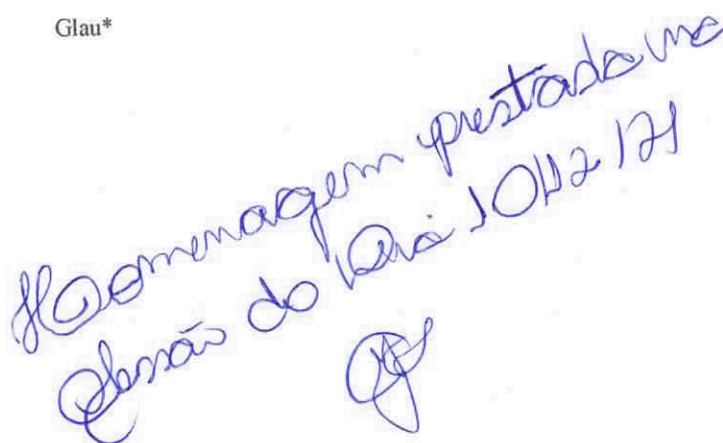 Glau*
Homenagem prestada na
Sessão do dia 10/12/21